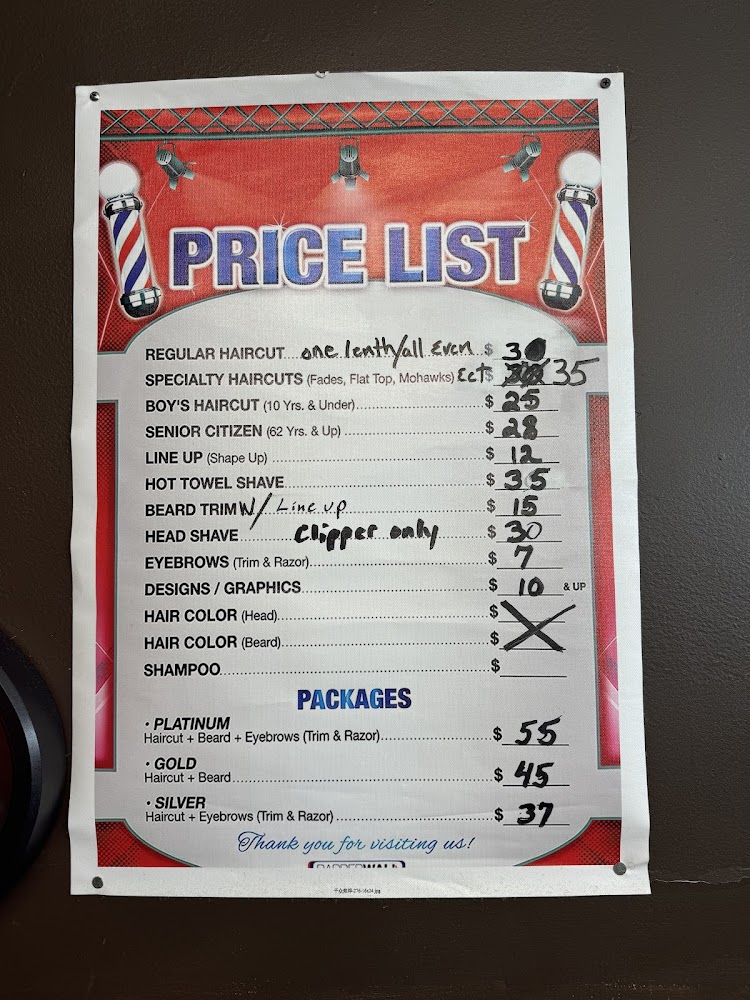 PRICE LIST
REGULAR HAIRCUT one lenth/all Even $ 30
SPECIALTY HAIRCUTS (Fades, Flat Top, Mohawks) Ect $ 35
BOY'S HAIRCUT (10 Yrs. & Under) $ 25
SENIOR CITIZEN (62 Yrs. & Up) $ 28
LINE UP (Shape Up) $ 12
HOT TOWEL SHAVE $ 35
BEARD TRIM W/ Line up $ 15
HEAD SHAVE Clipper only $ 30
EYEBROWS (Trim & Razor) $ 7
DESIGNS / GRAPHICS $ 10 & UP
HAIR COLOR (Head) $
HAIR COLOR (Beard) $
SHAMPOO $
PACKAGES
• PLATINUM
Haircut + Beard + Eyebrows (Trim & Razor) $ 55
• GOLD
Haircut + Beard $ 45
• SILVER
Haircut + Eyebrows (Trim & Razor) $ 37
Thank you for visiting us!